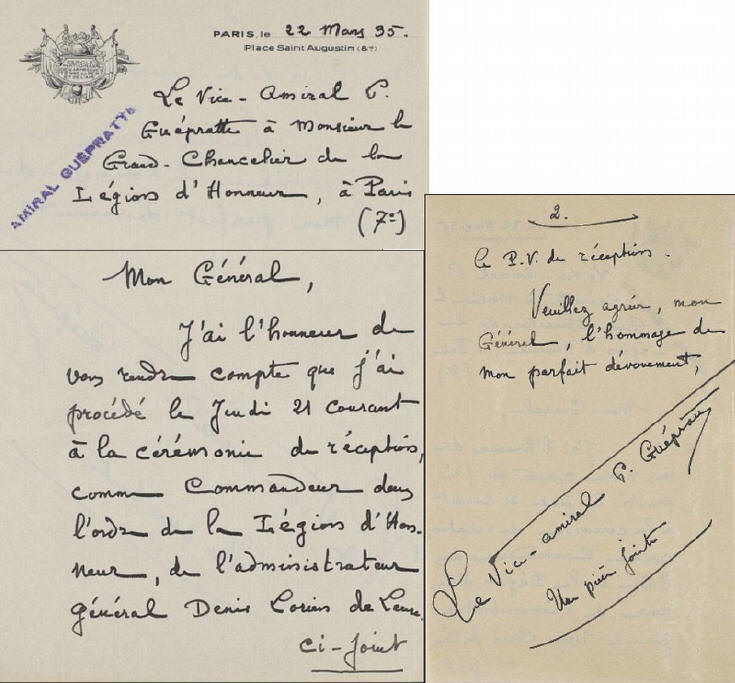 PARIS, le 22 Mars 35.
Place Saint Augustin (8e)
AMIRAL GUÉPRATTE
Le Vice-Amiral P.
Guépratte à Monsieur le
Grand-Chancelier de la
Légion d'Honneur, à Paris
(7e)
Mon Général,
J'ai l'honneur de
vous rendre compte que j'ai
procédé le Jeudi 21 courant
à la cérémonie de réception,
comme Commandeur dans
l'ordre de la Légion d'Hon-
neur, de l'administrateur
général Denis
de
ci-joint
2.
le P.V. de réception.
Veuillez agréer, mon
Général, l'hommage de
mon parfait dévouement,
Le Vice-amiral P. Guépratte
Une pièce jointe